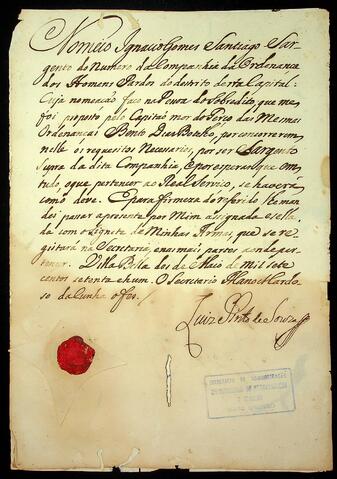 Nomeio Ignacio Gomes Santiago Sar-
gento do Numero da Companhia da Ordenança
dos Homens Pardos do destrito desta Capital:
Cuja nomeação faço na Pessoa do Sobredito, que me
foi proposto pelo Capitão mor do Terço das Mesmas
Ordenanças Bento Dias Botelho, por concorrerem
nelle os requezitos Necesarios, por ser Sargento
Supra da dita Companhia, e por esperar que em
tudo o que pertencer ao Real Serviço, se haverá
como deve. E para firmeza do referido lhe man
dei passar a prezente por Mim assignada e sella
da com o Signete de Minhas Armas, que se re-
gistará na Secretaria, e nas mais partes a onde per-
tencer. Villa Bella dos de Maio de mil sete
centos setenta e hum. O Secretario
so da Cunha o fes.
Luiz Pinto de Souza